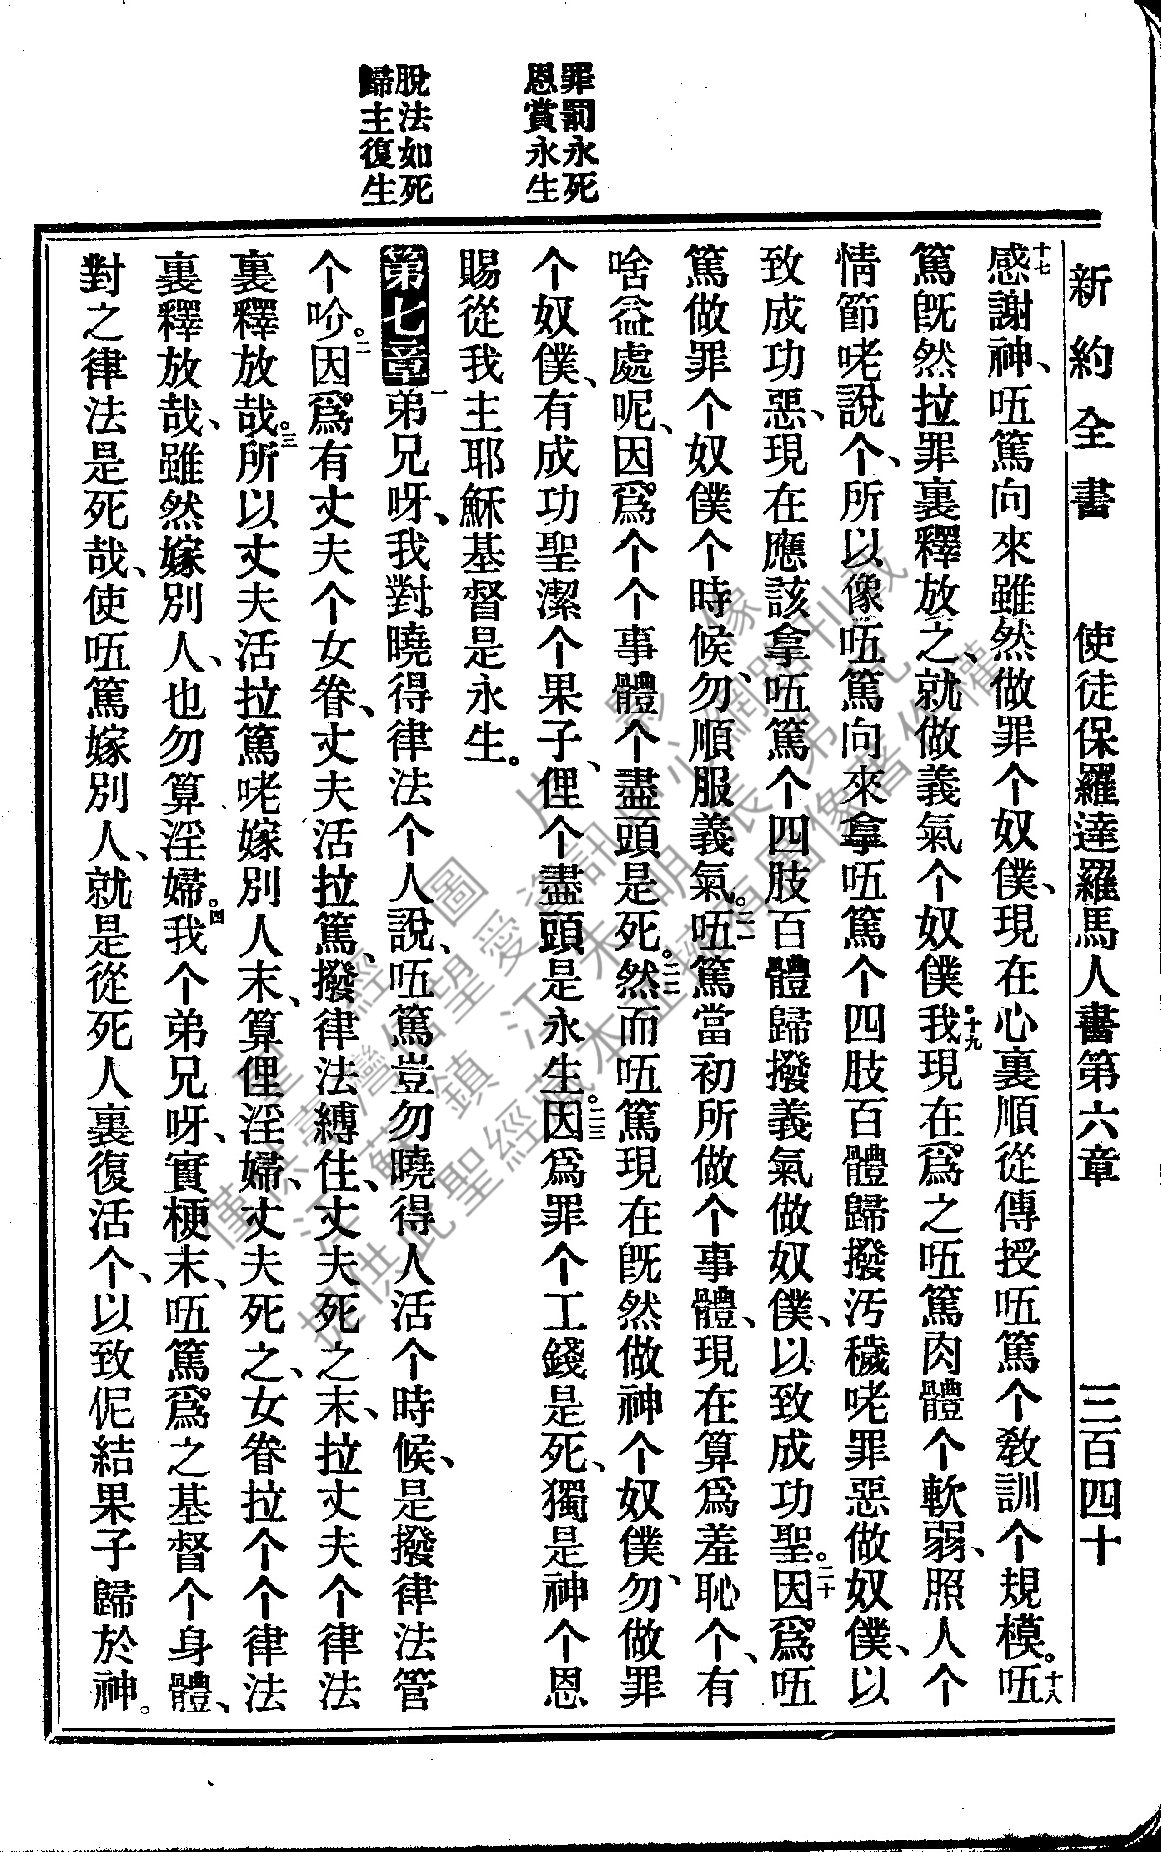 新約全書 使徒保羅達羅馬人書第六章 三百四十
罪罰永死
恩賞永生
脫法如死
歸主復生
十七感謝神、㕶篤向來雖然做罪个奴僕、現在心裏順從傳授㕶篤个教訓个規模。十八㕶
篤旣然拉罪裏釋放之、就做義氣个奴僕。十九我現在爲之㕶篤肉體个軟弱、照人个
情節咾說个、所以像㕶篤向來拿㕶篤个四肢百體歸撥汚穢咾罪惡做奴僕、以
致成功惡、現在應該拿㕶篤个四肢百體歸撥義氣做奴僕、以致成功聖。二十因爲㕶
篤做罪个奴僕个時候、勿順服義氣。二一㕶篤當初所做个事體、現在算爲羞恥个、有
啥益處呢、因爲个个事體个盡頭是死。二二然而㕶篤現在旣然做神个奴僕、勿做罪
个奴僕、有成功聖潔个果子、俚个盡頭是永生。二三因爲罪个工錢是死、獨是神个恩
賜從我主耶穌基督是永生。
第七章 一弟兄呀、我對曉得律法个人說、㕶篤豈勿曉得人活个時候、是撥律法管
个吤。二因爲有丈夫个女眷、丈夫活拉篤、撥律法縛住、丈夫死之末、拉丈夫个律法
裏釋放哉。三所以丈夫活拉篤咾嫁別人末、算俚淫婦、丈夫死之、女眷拉个个律法
裏釋放哉、雖然嫁別人、也勿算淫婦。四我个弟兄呀、實梗末、㕶篤爲之基督个身體、
對之律法是死哉、使㕶篤嫁別人、就是從死人裏復活个、以致伲結果子歸於神。
聖經圖
上影像
僅供臺灣珀望愛資訊中心網路刊載
江蘇鎮江朱明長弟兄
提供此聖經底本並擁有圖像著作權